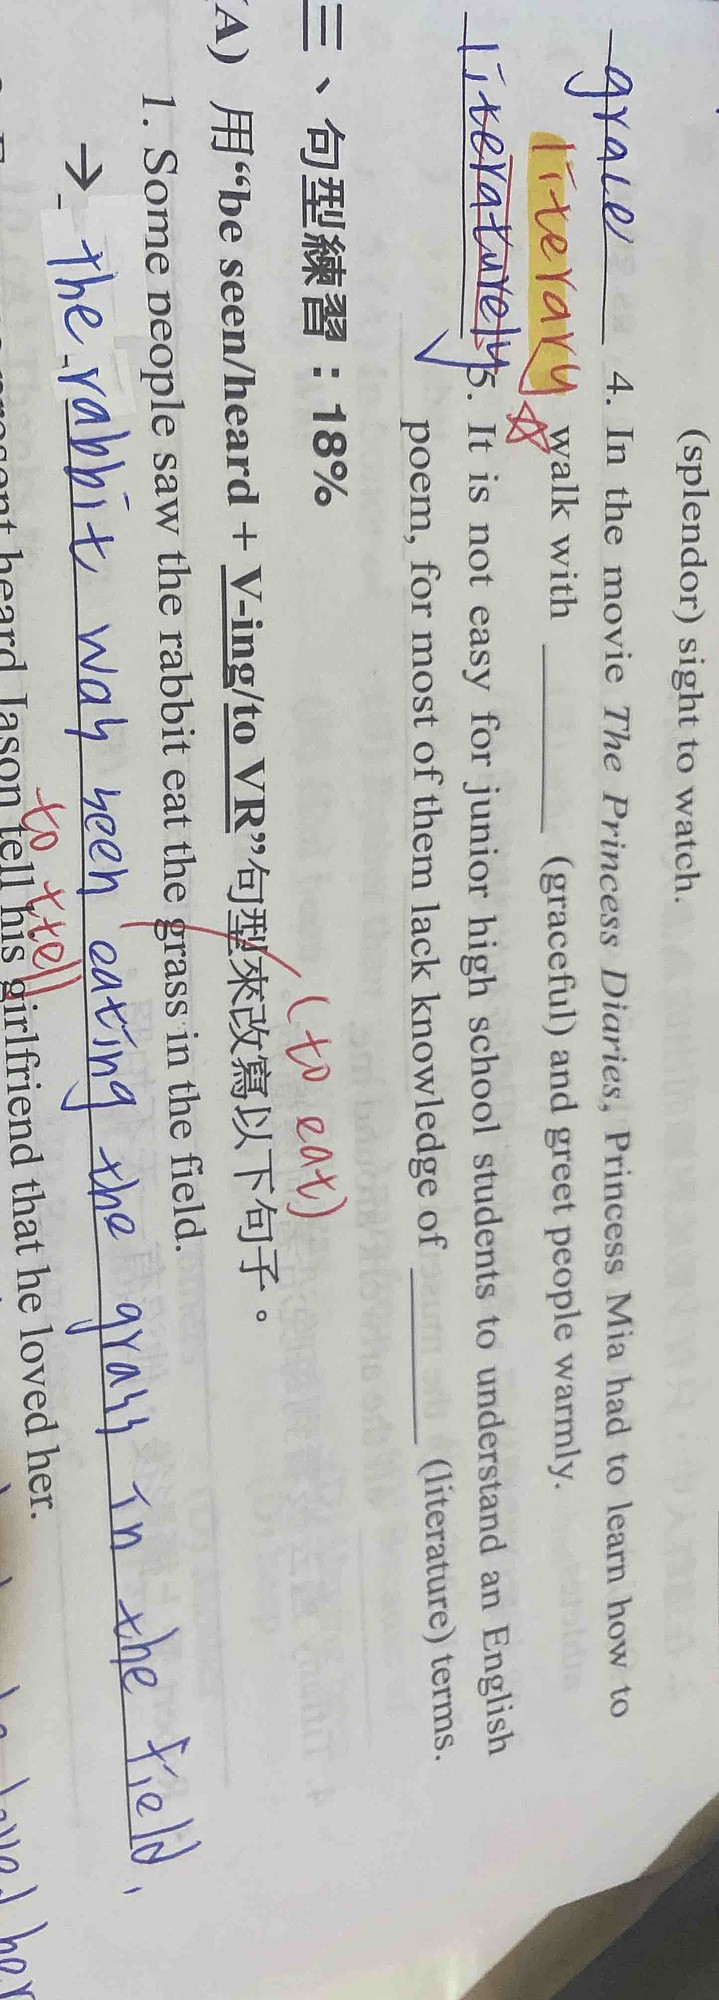 (splendor) sight to watch.
grace 4. In the movie The Princess Diaries, Princess Mia had to learn how to
literary walk with ________ (graceful) and greet people warmly.
literaturely 5. It is not easy for junior high school students to understand an English
poem, for most of them lack knowledge of ________ (literature) terms.
三、句型練習：18%
(to eat)
(A) 用“be seen/heard + V-ing/to VR”句型來改寫以下句子。
1. Some people saw the rabbit eat the grass in the field.
→ the rabbit was seen eating the grass in the field.
to tell
heard Jason tell his girlfriend that he loved her.
loved her